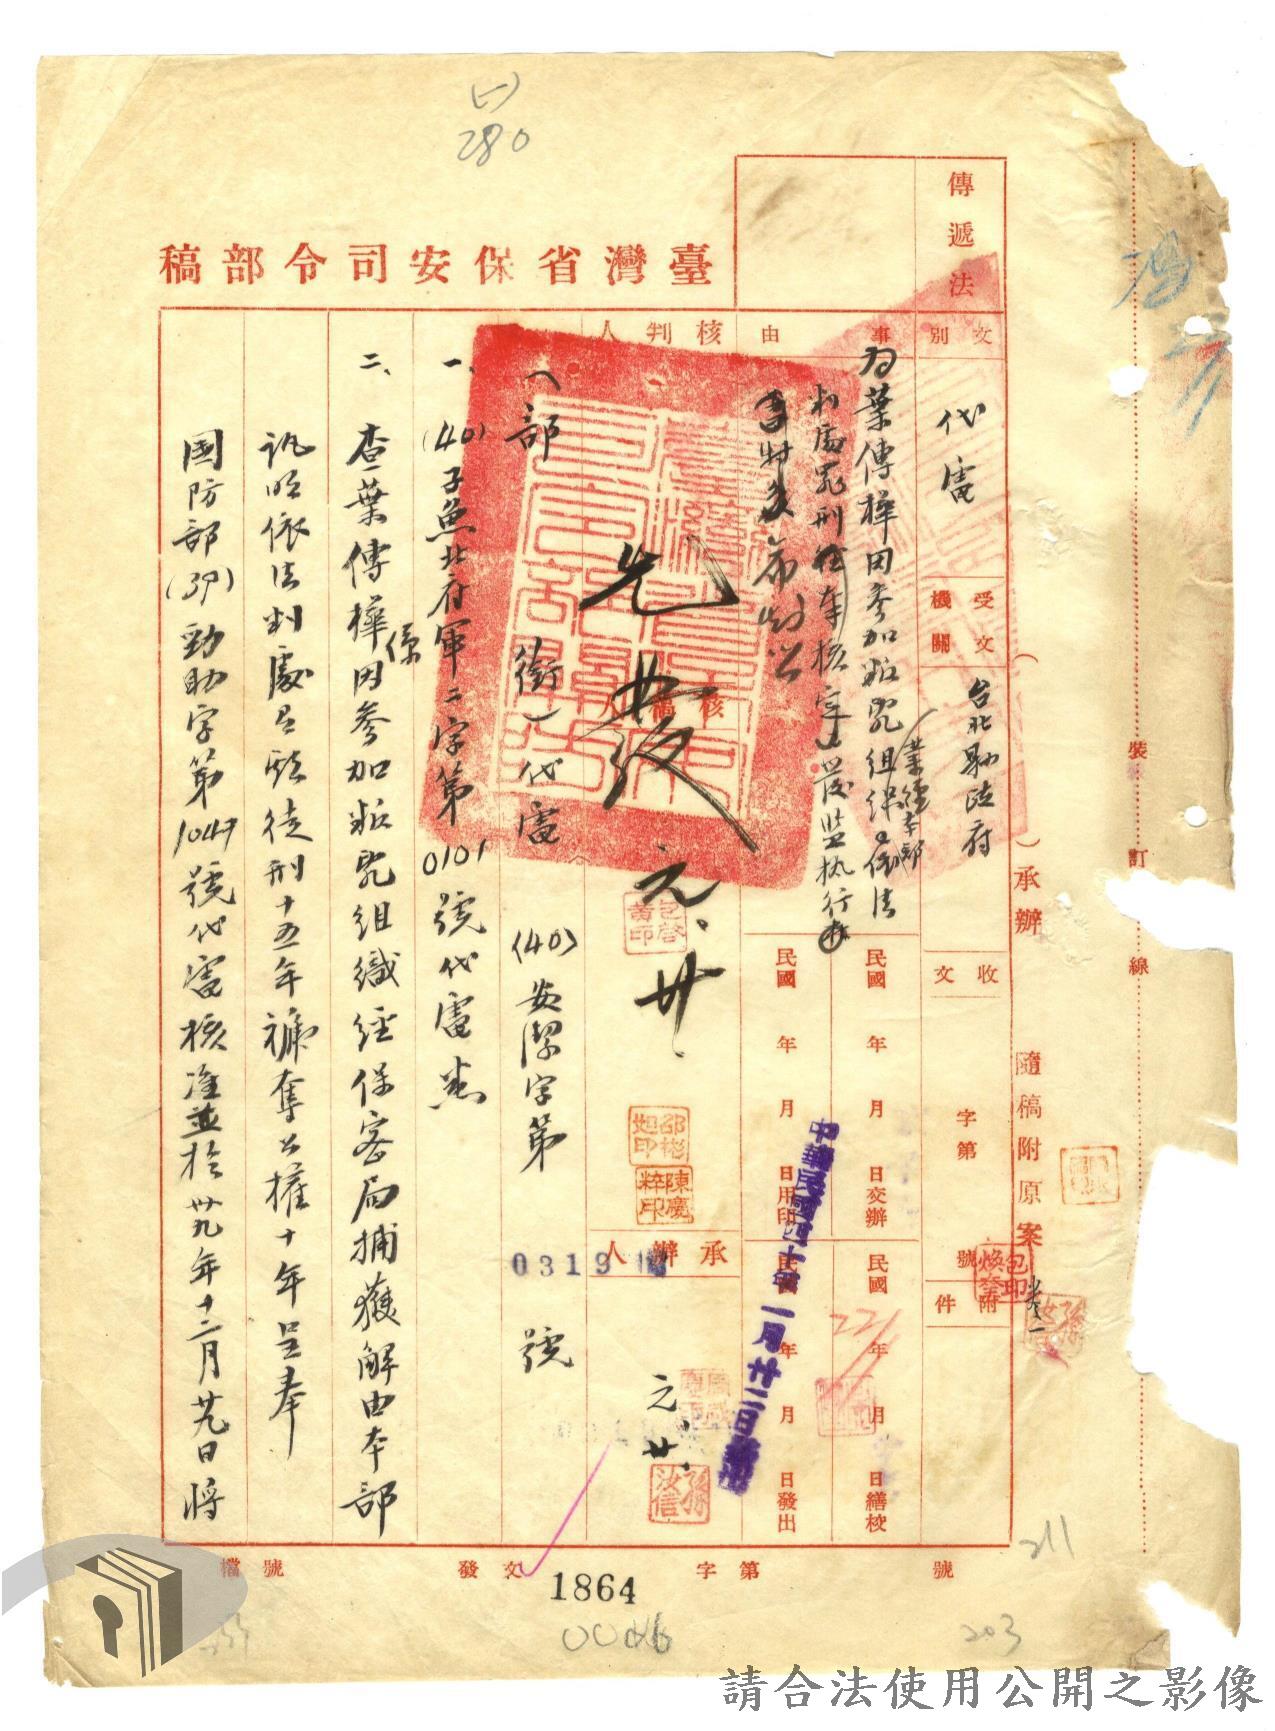 ㈠
280
傳遞法
臺灣省保安司令部稿
文別
代電
受文機關
台北縣政府
收文
字第
號
附件
事由
為葉傳樺因參加叛亂組織
業經本部
依法
判處罪刑
核定
發監執行
希
民國 年 月 日交辦
民國 年 月 日繕校
民國 年 月 日用印
民國 年 月 日發出
中華民國四十年一月廿二日
22/1
核判人
先發
元.廿.
核稿人
包啓黄印
陳慶粹印
承辦人
元.廿.
孫汝信
(部銜)代電
(40)安潔字第
0319
號
一、(40)子魚北府軍二字第0101號代電悉
二、查葉傳樺
係
因參加叛亂組織經保密局捕獲解由本部
訊明依法判處有期徒刑十五年褫奪公權十年呈奉
國防部(39)勁助字第1047號代電核准並於卅九年十二月廿九日將
(
)承辦
隨稿附原案
卷一
包煥奎印
裝
訂
線
檔號
發文
字第
號
1864
0046
211
203
請合法使用公開之影像